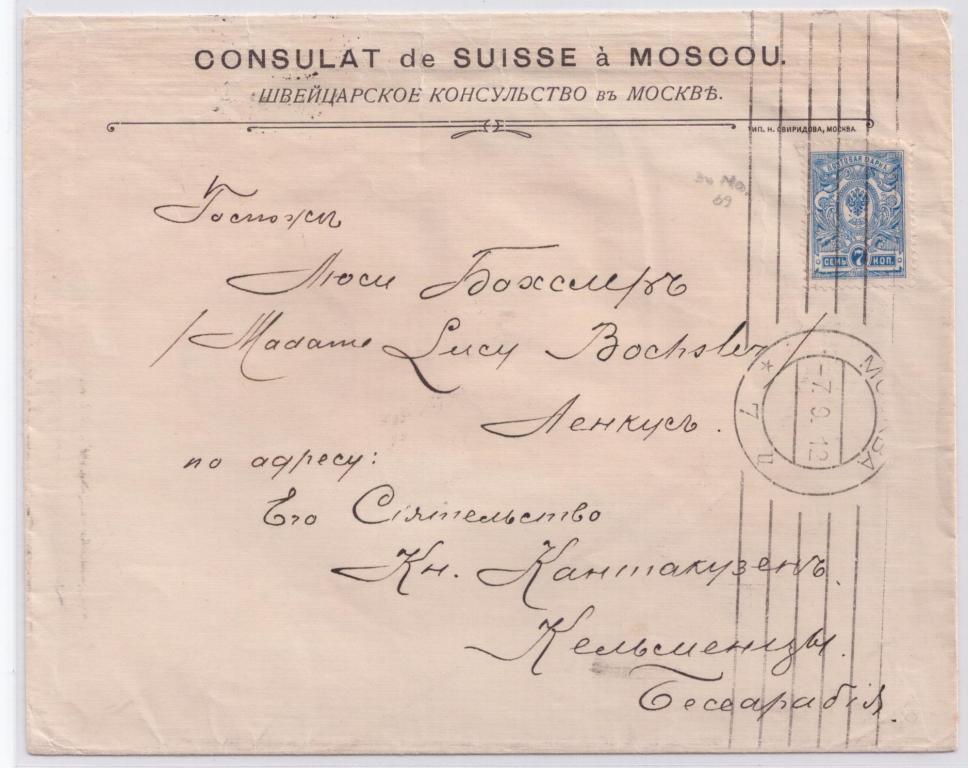 CONSULAT de SUISSE à MOSCOU.
ШВЕЙЦАРСКОЕ КОНСУЛЬСТВО въ МОСКВѢ.
ТИП. Н. СВИРИДОВА, МОСКВА.
ПОЧТОВАЯ МАРКА
СЕМЬ 7 КОП.
Госпожѣ
Люси Бохслеръ
/Madame Lucy Bochsler/
Ленкусъ.
по адресу:
Его Сіятельство
Кн. Кантакузенъ.
Кельменцы.
Бессарабія.
МОСКВА
-7.9.12
* 7 п
69